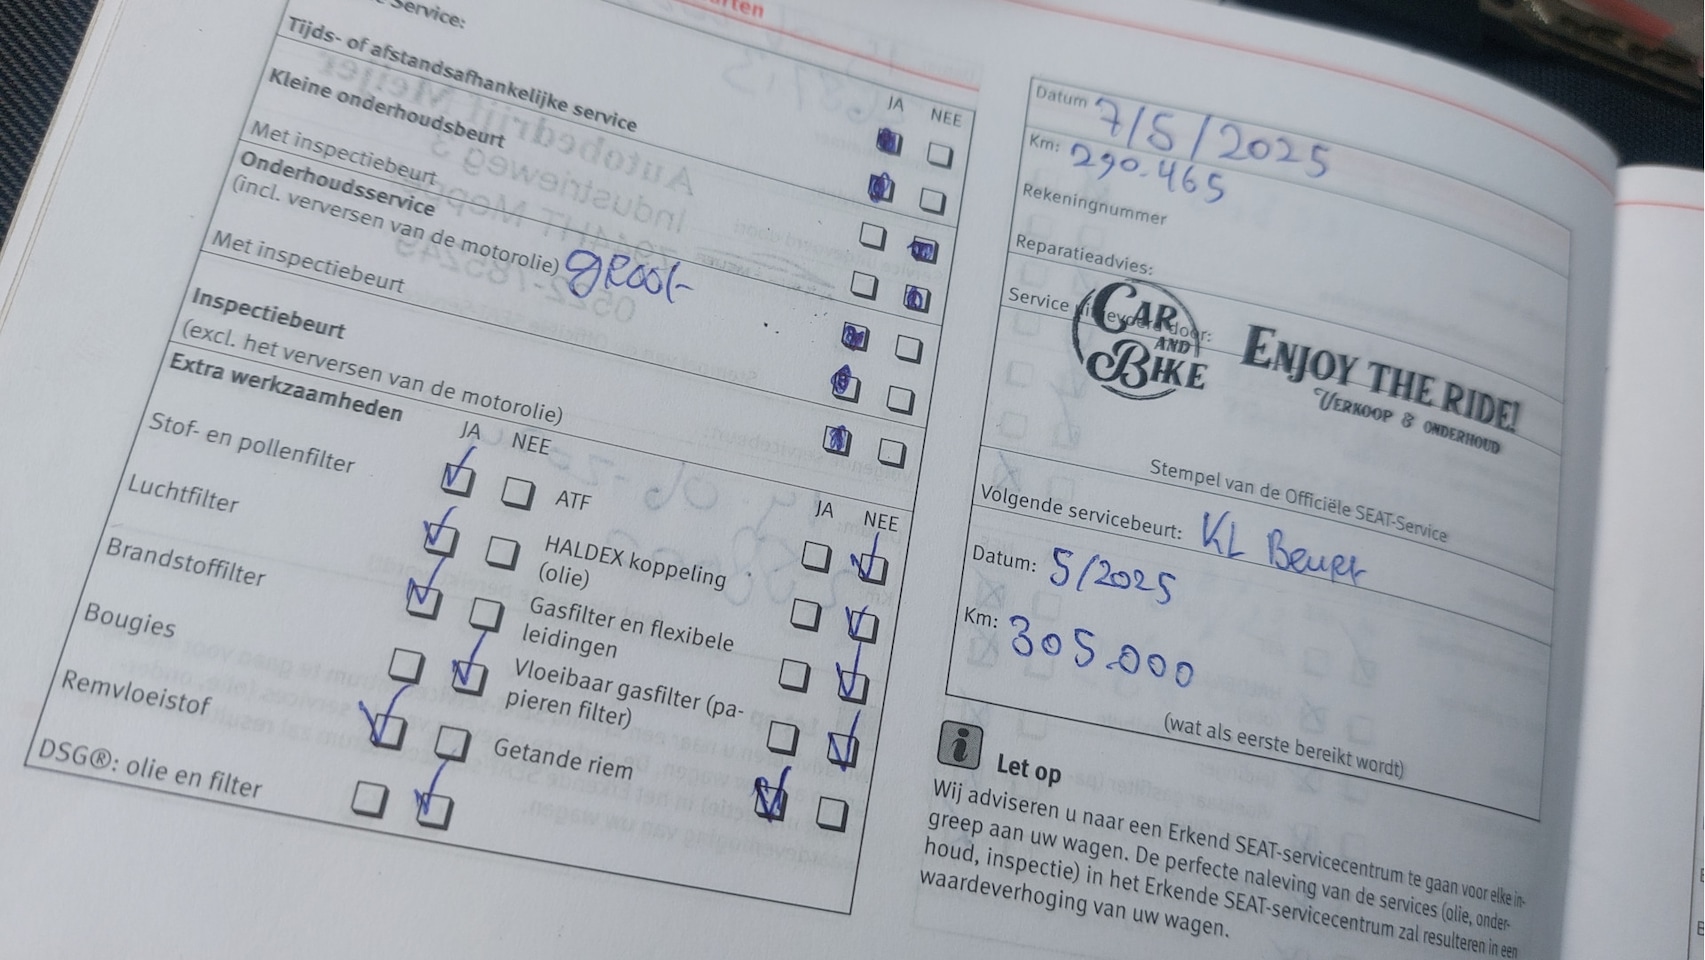 Service:
Tijds- of afstandsafhankelijke service
Kleine onderhoudsbeurt
Met inspectiebeurt
Onderhoudsservice
(incl. verversen van de motorolie) groot
Met inspectiebeurt
Inspectiebeurt
(excl. het verversen van de motorolie)
JA NEE
Extra werkzaamheden
JA NEE
Stof- en pollenfilter
Luchtfilter
Brandstoffilter
Bougies
Remvloeistof
DSG®: olie en filter
JA NEE
ATF
HALDEX koppeling
(olie)
Gasfilter en flexibele
leidingen
Vloeibaar gasfilter (pa-
pieren filter)
Getande riem
Datum 7/5/2025
Km: 290.465
Rekeningnummer
Reparatieadvies:
Service uitgevoerd door:
CAR
AND
BIKE
ENJOY THE RIDE!
VERKOOP & ONDERHOUD
Stempel van de Officiële SEAT-Service
Volgende servicebeurt: KL Beurt
Datum: 5/2025
Km: 305.000
(wat als eerste bereikt wordt)
i
Let op
Wij adviseren u naar een Erkend SEAT-servicecentrum te gaan voor elke in-
greep aan uw wagen. De perfecte naleving van de services (olie, onder-
houd, inspectie) in het Erkende SEAT-servicecentrum zal resulteren in een
waardeverhoging van uw wagen.